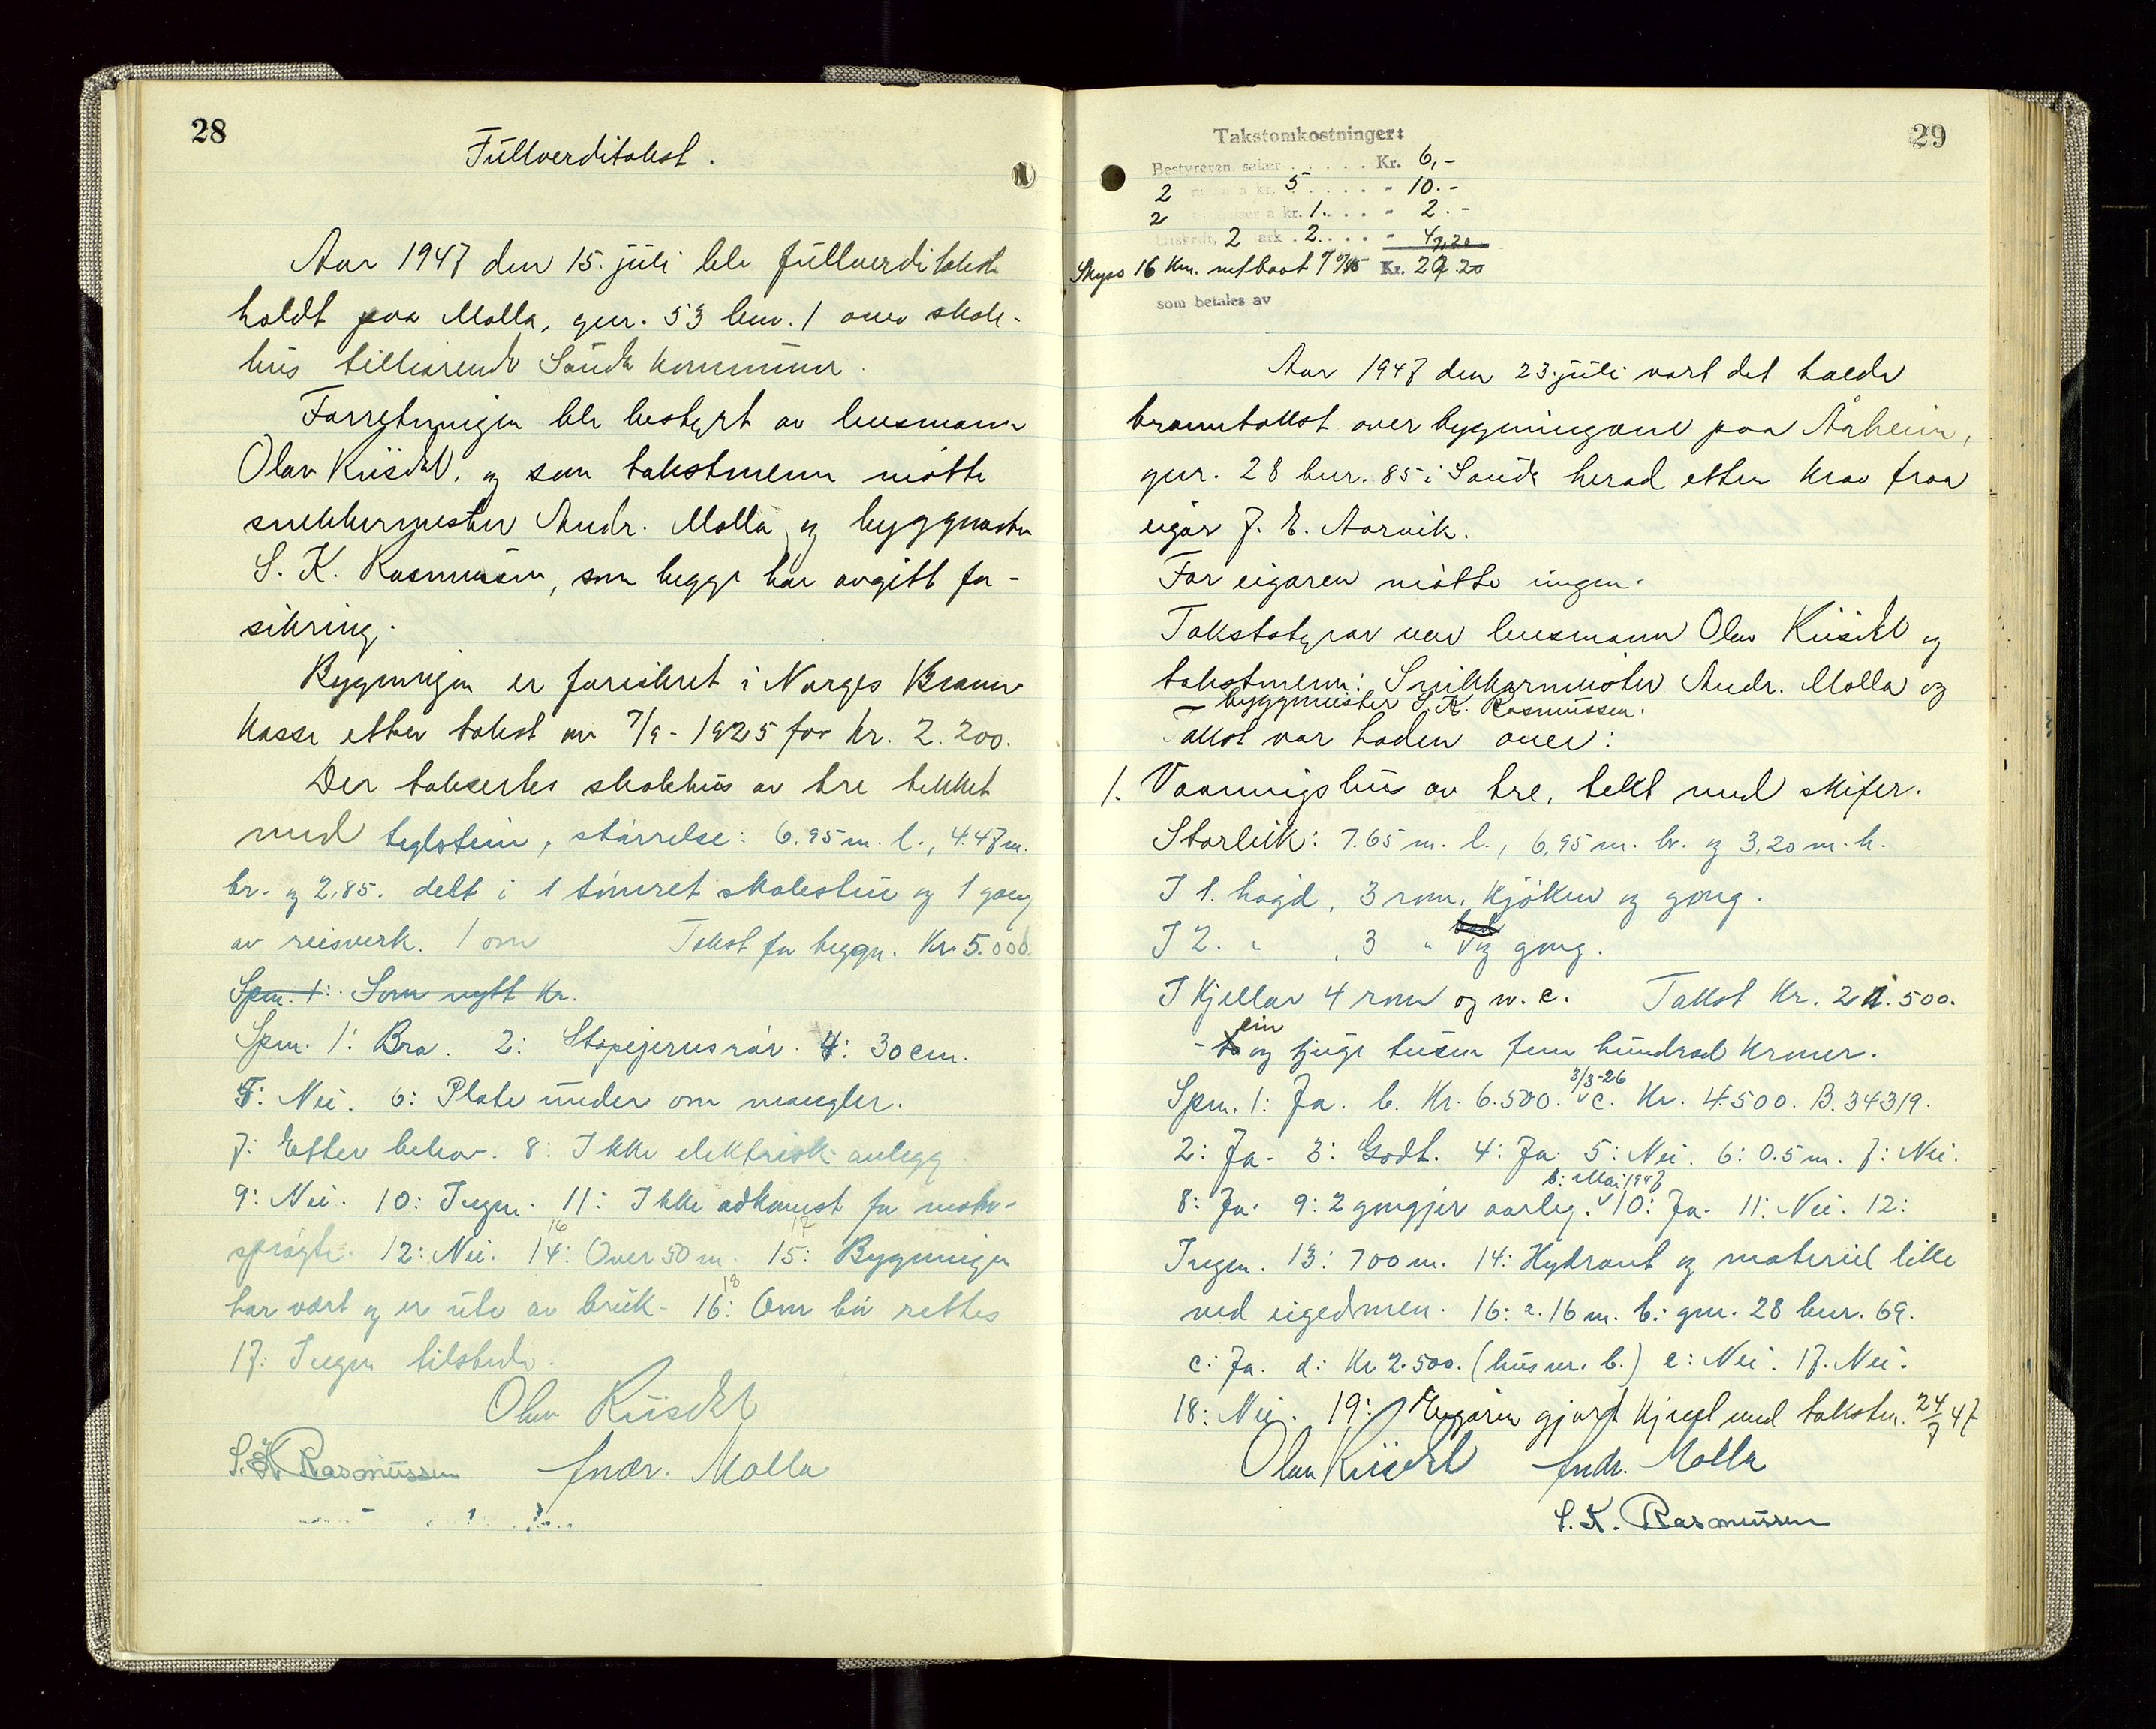 28
Fullverditakst.
Aar 1947 den 15. juli ble fullverditakst
holdt paa Molla, gnr. 53 bnr. 1 over skole-
hus tilhørende Sande kommune.
Forretningen ble bestyrt av lensmann
Olav Riisdal, og som takstmenn møtte
snekkermester Andr. Molla og byggmester
S. K. Rasmussen, som begge har avgitt for-
sikring.
Bygningen er forsikret i Norges Brann-
kasse etter takst av 7/9-1925 for kr. 2.200.
Der taksertes skolehus av tre tekket
med teglstein, størrelse: 6.95 m. l., 4.47 m.
br. og 2.85. delt i 1 tømret skolestue og 1 gang
av reisverk. 1 om Takst for byggn. Kr. 5.000.
Spm. 1: Som nytt kr.
Spm. 1: Bra. 2: Støpejernsrør. 4: 30 cm.
5: Nei. 6: Plate under ovn mangler.
7: Etter behov. 8: Ikke elektrisk anlegg
9: Nei. 10: Ingen. 11: Ikke adkomst for motor-
sprøyte. 12: Nei. 16 14: Over 50 m. 17 15: Bygningen
har vært og er ute av bruk. 18 16: Ovn bør rettes
17: Ingen tilstede.
Olav Riisdal
S. K. Rasmussen Andr. Molla
29
Takstomkostninger:
Bestyreren, salær Kr. 6,-
2 menn a kr. 5 - 10.-
2 a kr. 1. - 2.-
Utskrift, 2 ark 2. -
Skyss 16 km. m/baat Kr. 29.20
som betales av
Aar 1947 den 23. juli vart det halde
branntakst over bygningane paa Årheim,
gnr. 28 bnr. 85 i Sande herad etter krav fraa
eigar J. E. Aarvik.
For eigaren møtte ingen.
Takststyrar var lensmann Olav Riisdal og
takstmenn: Snikkarmeister Andr. Molla og
byggmeister S. K. Rasmussen.
Takst var halden over:
1. Vaaningshus av tre, tekt med skifer.
Storleik: 7.65 m. l., 6,95 m. br. og 3,20 m. h.
I 1. høgd, 3 rom, kjøken og gong.
I 2. " , 3 " bad og gong.
I kjellar 4 rom og w. c. Takst Kr. 21.500.
- ein og tjuge tusen fem hundrad kroner.
Spm. 1: Ja. b. Kr. 6.500. 3/3-26 c. Kr. 4.500. B. 34319.
2: Ja. 3: Godt. 4: Ja. 5: Nei. 6: 0.5 m. 7: Nei.
8: Ja. 9: 2 gongjer aarleg. b: Mai 1947 10: Ja. 11: Nei. 12:
Ingen. 13: 700 m. 14: Hydrant og materiel like
ved eigedomen. 16: a. 16 m. b: gnr. 28 bnr. 69.
c: Ja. d: Kr 2.500. (hus nr. b.) e: Nei. 17. Nei.
18: Nei. 19: Eigaren gjort kjend med taksten. 24/7 47
Olav Riisdal Andr. Molla
S. K. Rasmussen